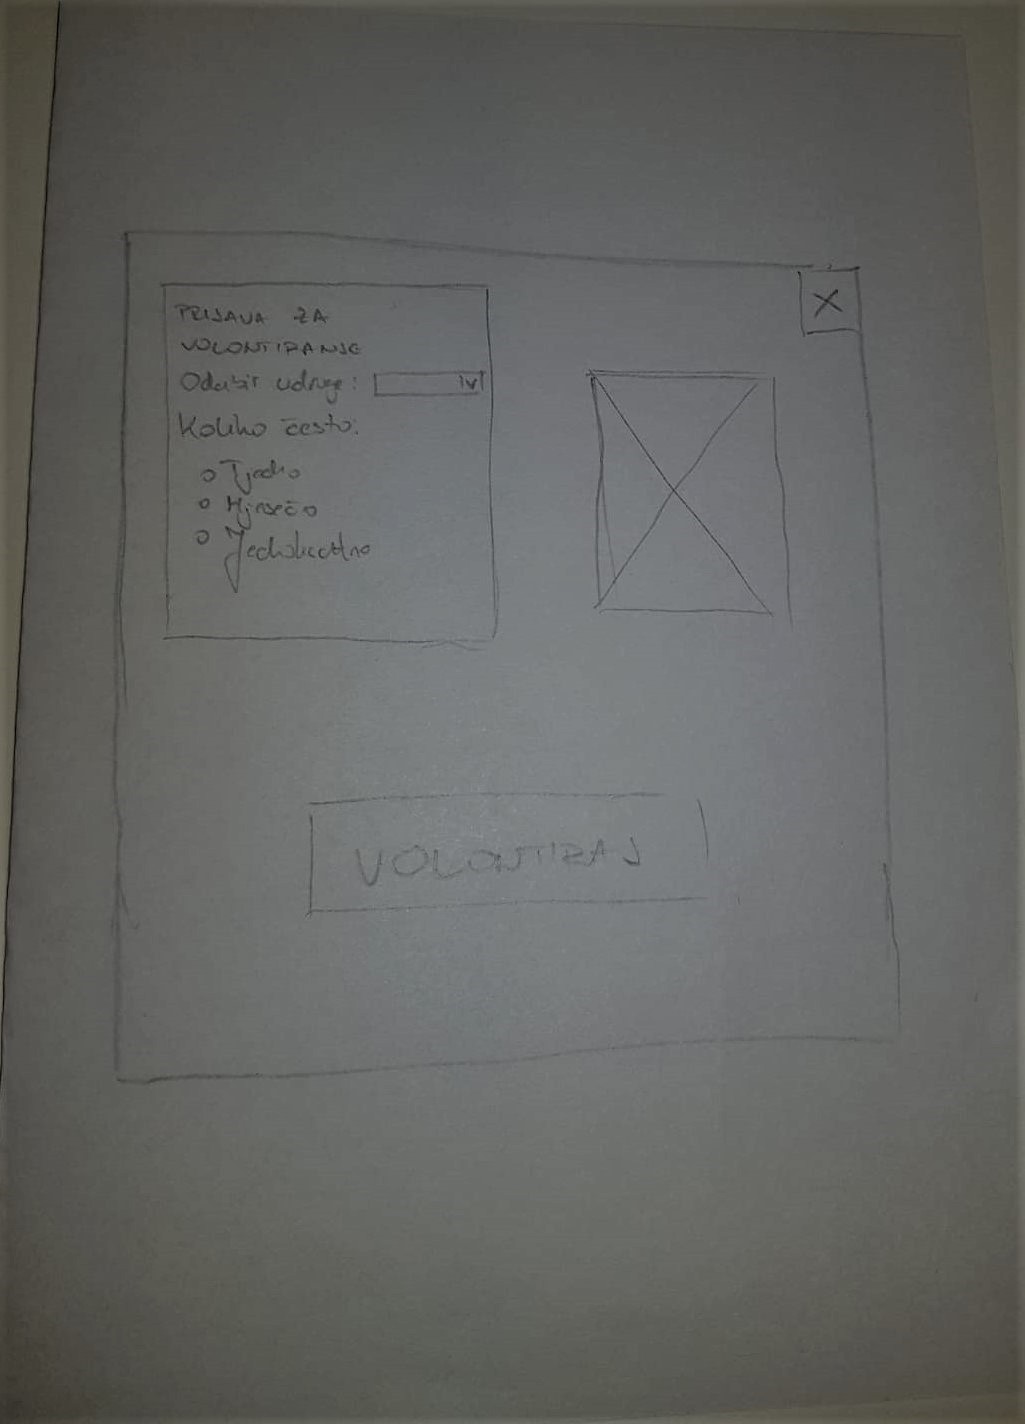 PRIJAVA ZA
VOLONTIRANJE
Odabir udruge:
Koliko često:
Tjedno
Mjesečno
Jednokratno
VOLONTIRAJ